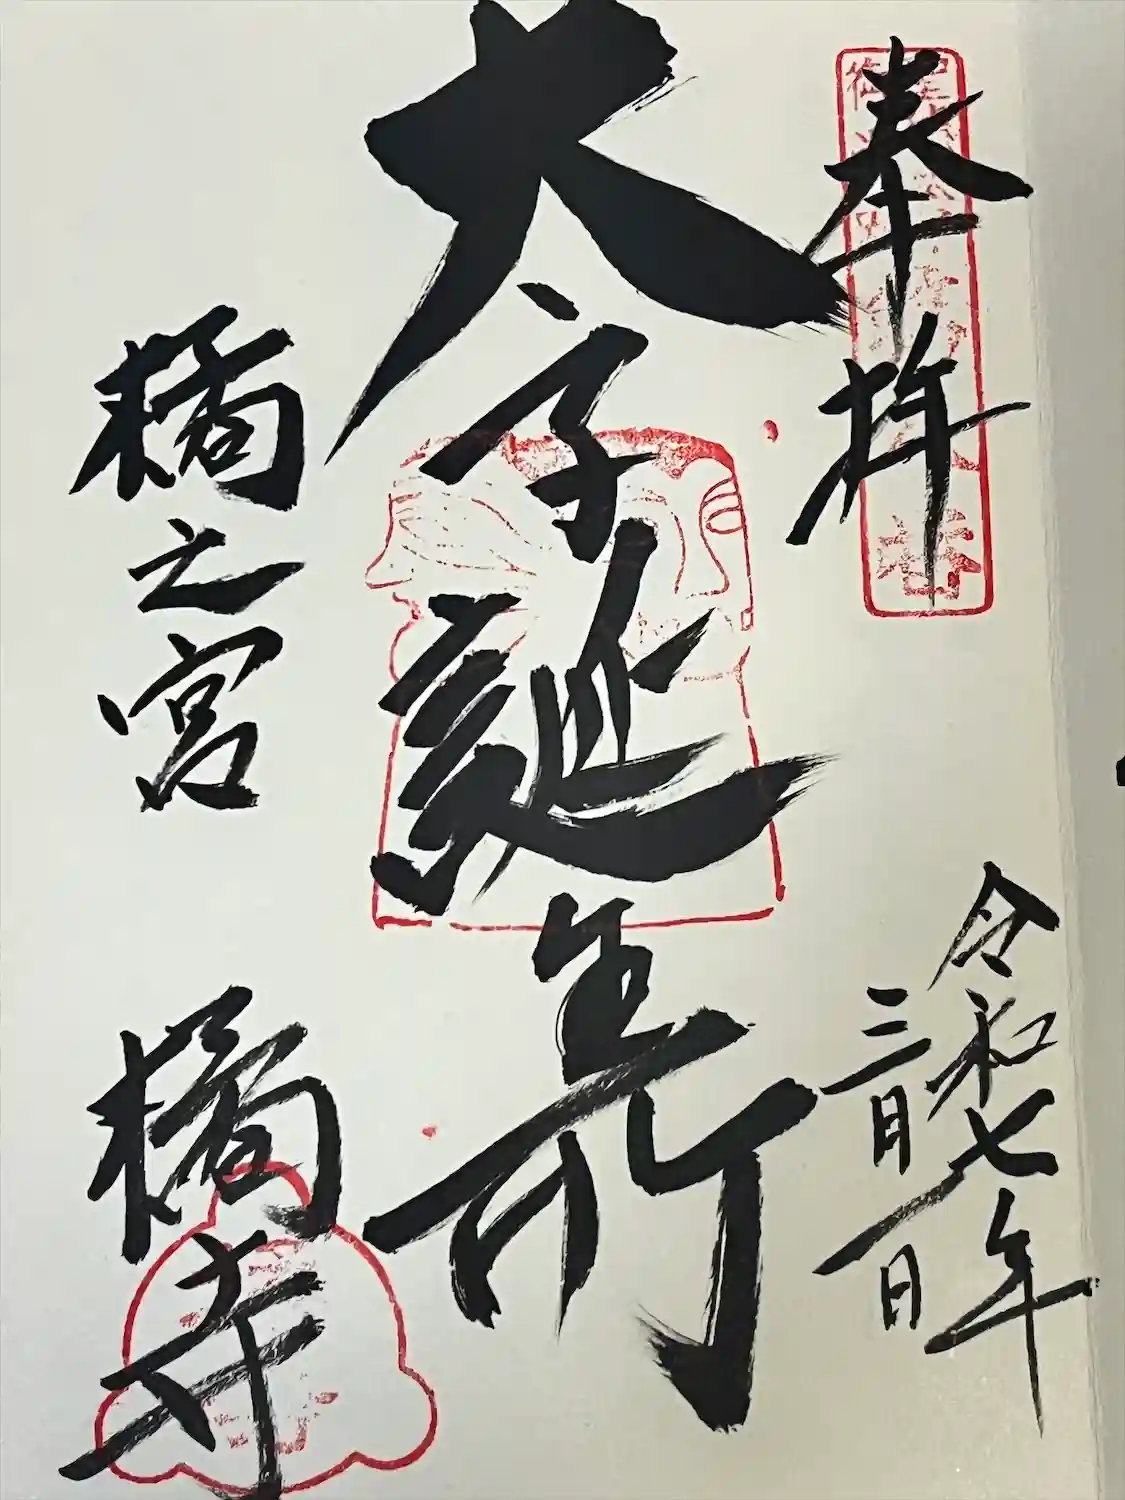 奉拝
令和七年
三月一日
太子誕生所
橘之宮
橘寺